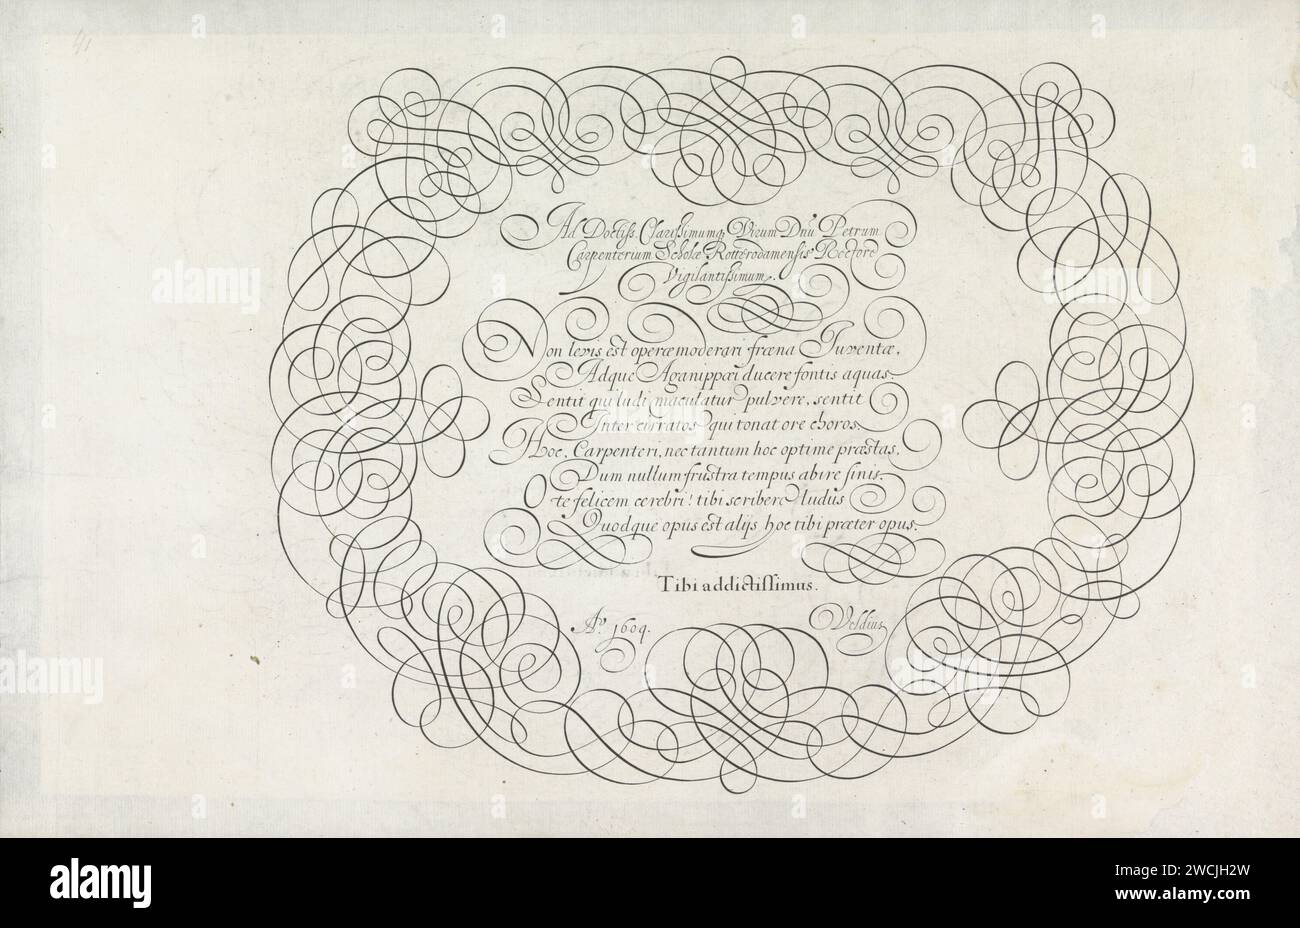 41
Ad Doctiss. Clarissimumq Virum Dnū Petrum
Carpenterium Scholæ Rotterodamensis Rectore
Vigilantissimum.
Non levis est operæ moderari fræna Juventæ,
Adque Aganippæi ducere fontis aquas.
Sentit qui ludi maculatur pulvere, sentit
Inter cirratos qui tonat ore choros.
Hoc, Carpenteri, nec tantum hoc optime præstas,
Dum nullum frustra tempus abire sinis.
O te felicem cerebri! tibi scribere ludus
Quodque opus est alijs hoc tibi præter opus.
Tibi addictissimus.
Aº. 1604.
Veldius
alamy
alamy
alamy
Image ID: 2WCJH2W
www.alamy.com